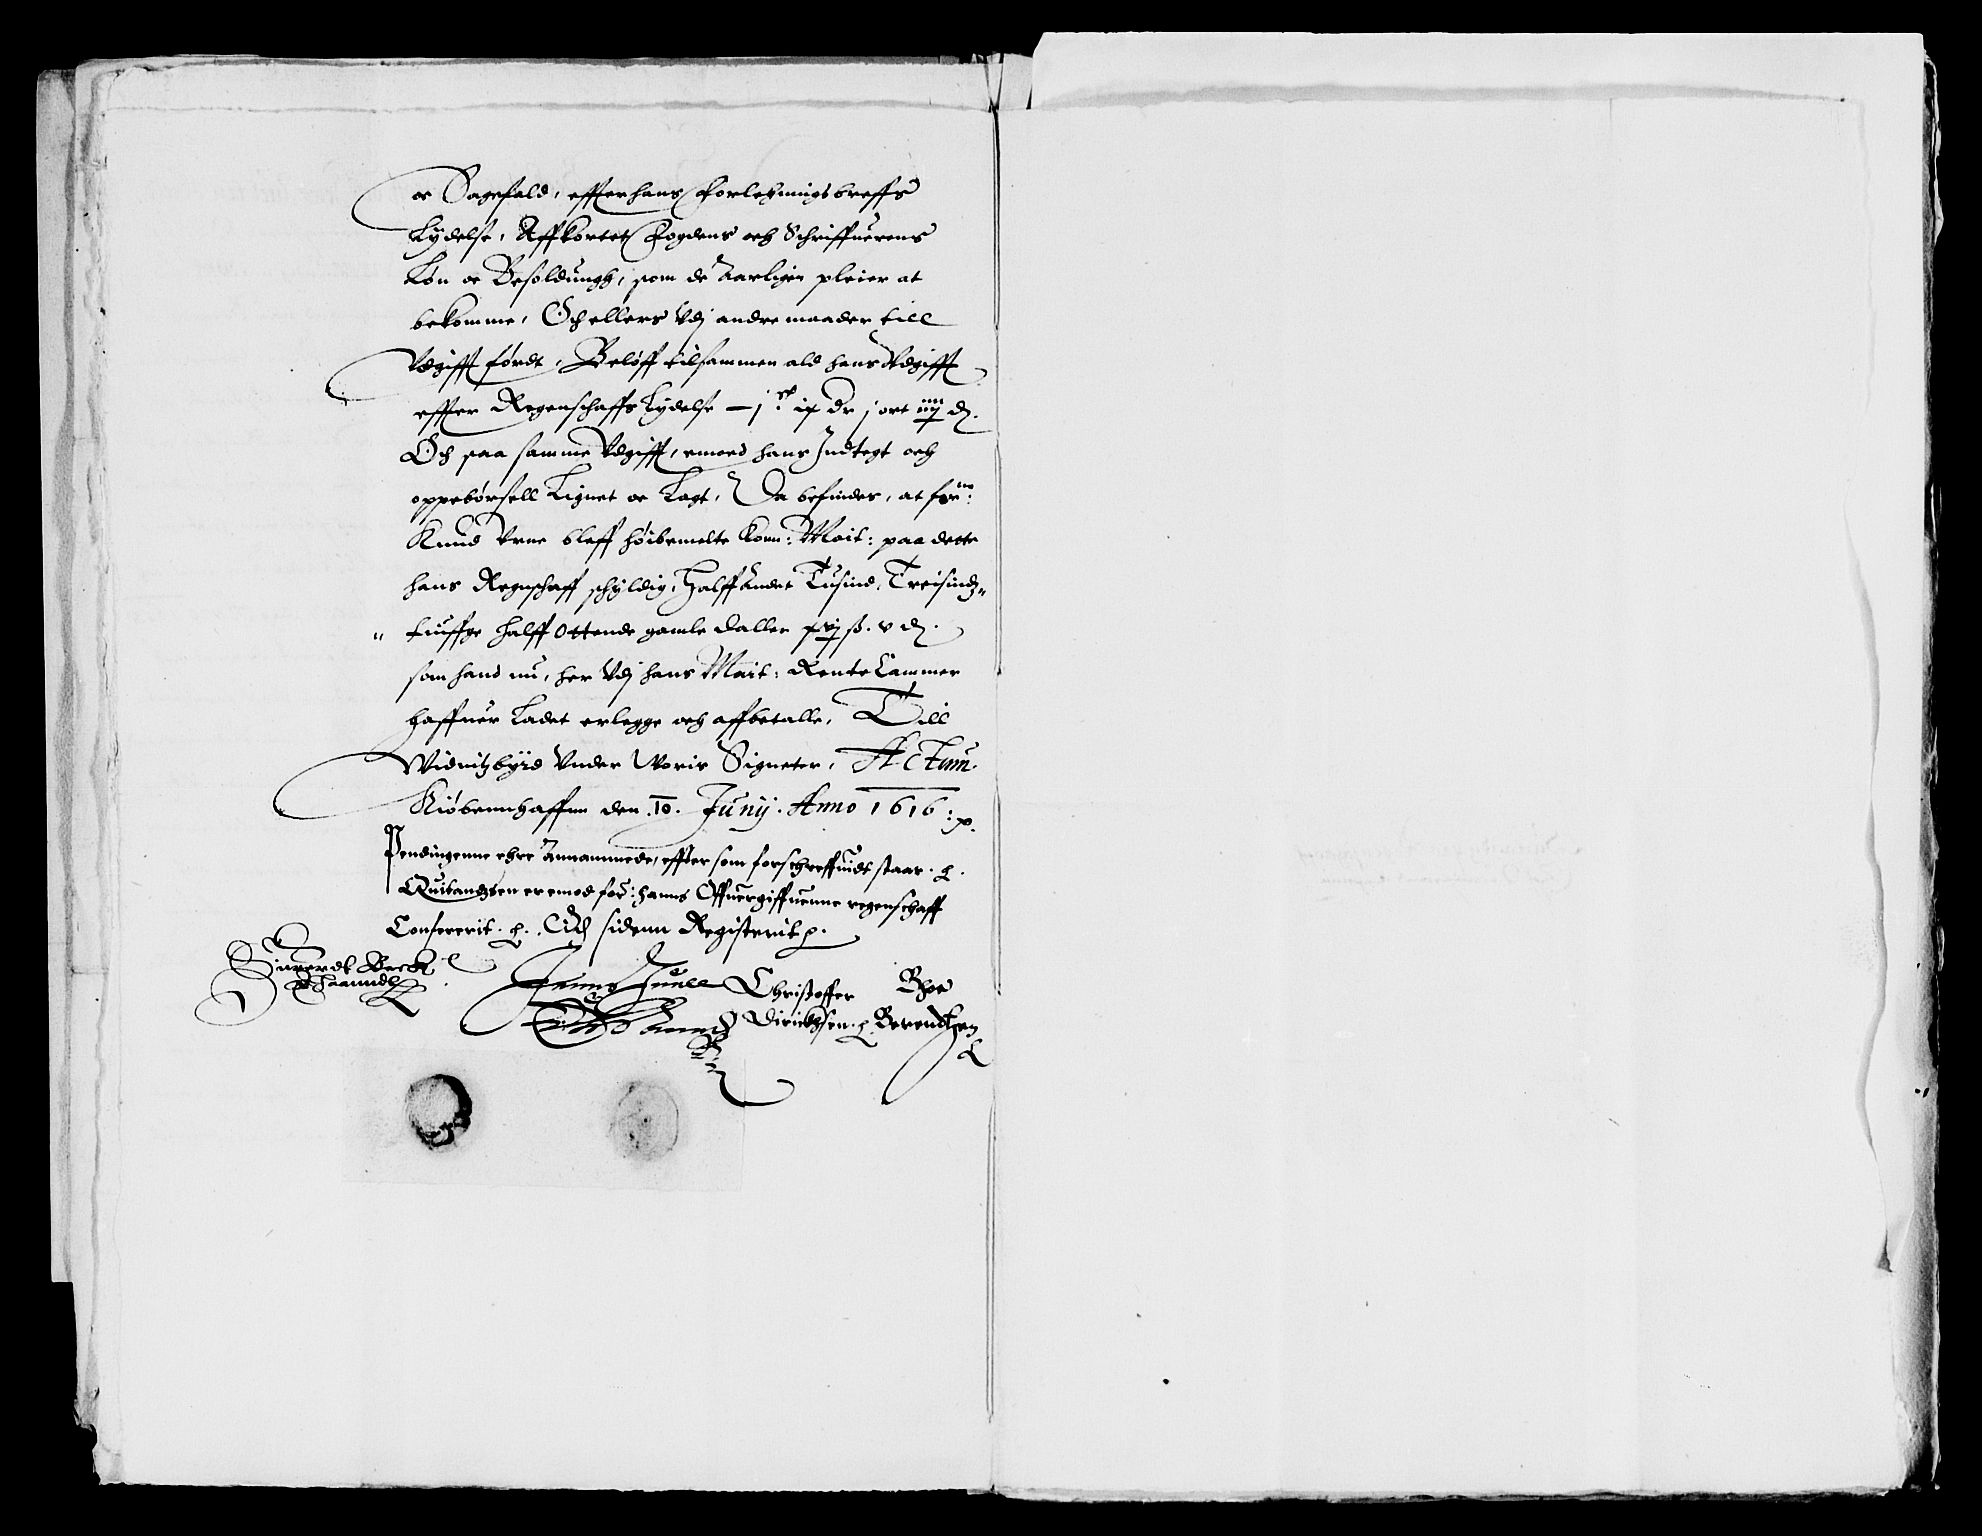 oc Sagefald, effter hans forlehningsbreffs
Lydelse, Affkortet Fogdens och Schriffuerens
Løn oc Besoldungh, som de Aarligen pleier at
bekomme, Och ellers vdj andre maader till
Vdgifft førdt, Beløff tilsammen ald hans Vdgifft
effter Regenschaffs Lydelse — j ix dr j ort iiij d.
Och paa samme Vdgifft, emoed hans Indtegt och
oppebørsell Lignet oc Lagt, Da befindes, at for:ne
Knud Vrne bleff høibemelte Konn: Mait: paa dette
hans Regnschaff schyldig, Halffandet Tusind, Treisindz„
„ tiuffge halff Ottende gamle daller xvj ß. v d.
som hand nu, her vdj hans Mait: Rente Cammer
haffuer Ladet erlegge och affbetalle, Till
Widnitzbyrd Vnder Woris Signeter, Actum
Kiøbennhaffnn den .10. Junij. Anno 1616 :p.
Pendingenne ehre Annammede, effter som forschreffuidt staar.
Quitandtzen er emod for: hanns Offuergiffuenne regenschaff
Confererit. Och sidenn Registerit p.
Siuerdt Beck
Jenns Juell Christoffer Bhoe
Otto Dirichsen Berendtzen